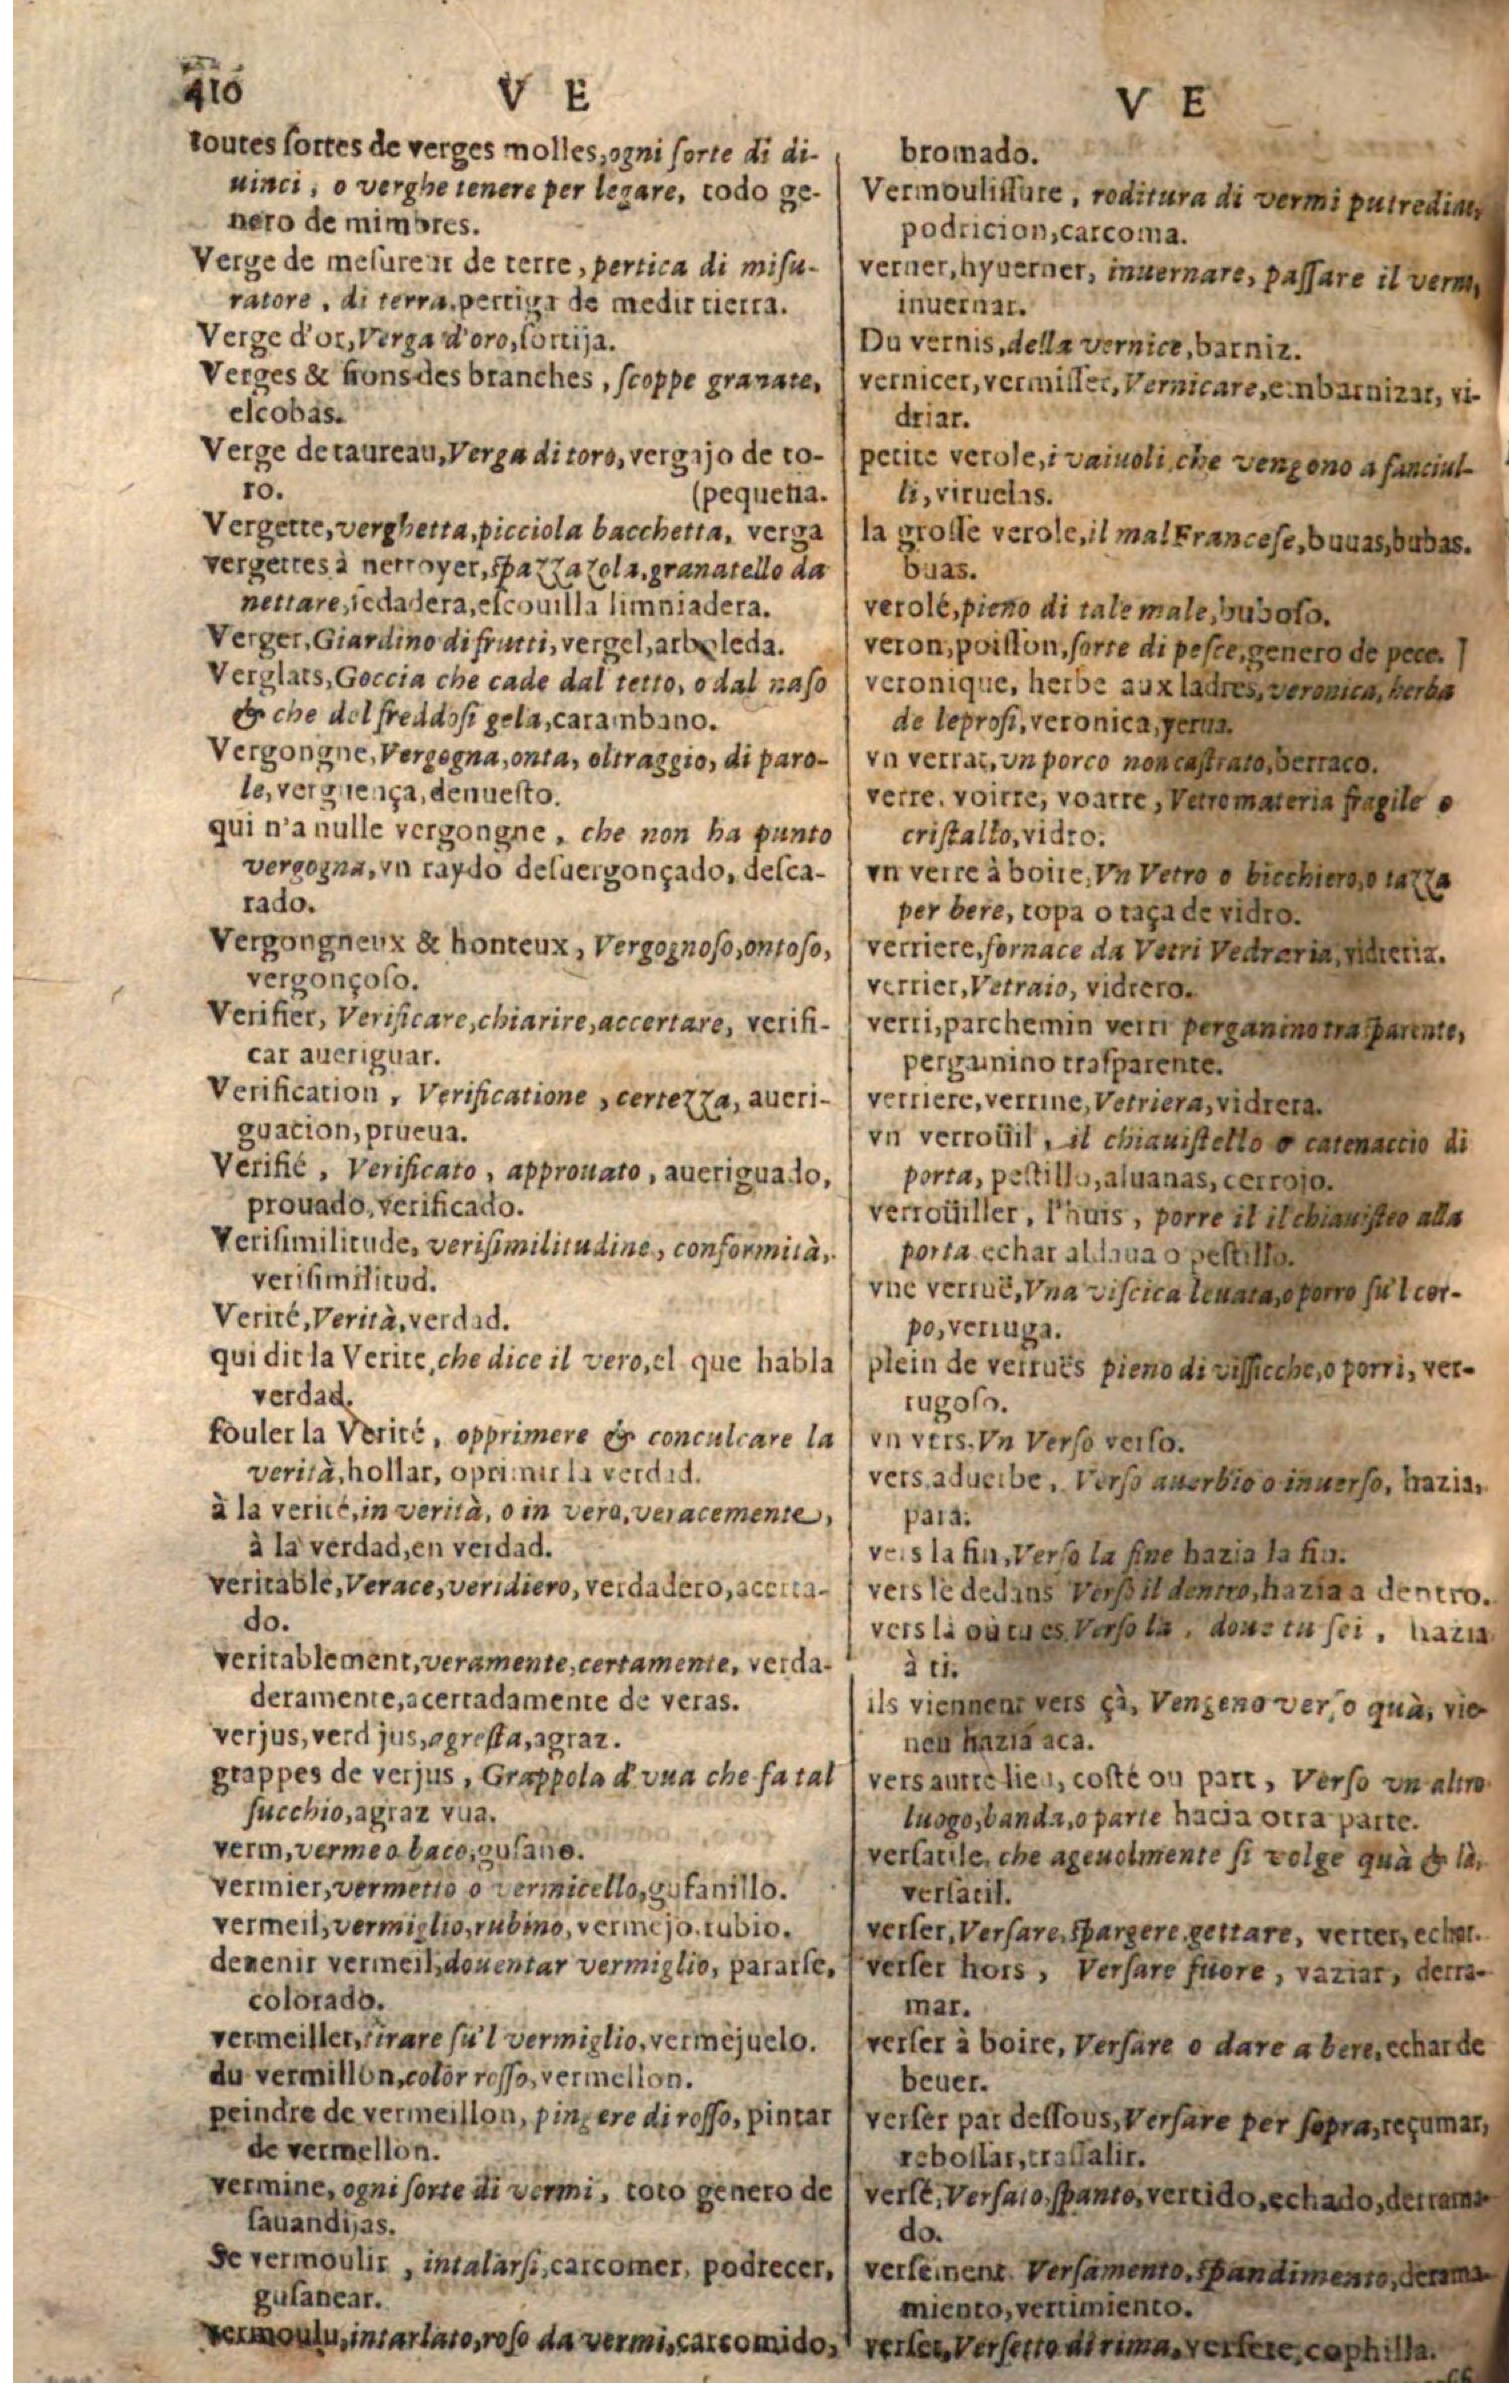 410
V E
toutes sortes de verges molles, ogni sorte di di-
uinci, o verghe tenere per legare, todo ge-
nero de mimbres.
Verge de mesureur de terre, pertica di misu-
ratore, di terra. pertiga de medir tierra.
Verge d'or, Verga d'oro, sortija.
Verges & sions des branches, scoppe granate,
escobas.
Verge de taureau, Verga di toro, vergajo de to-
ro. (pequeña.
Vergette, verghetta, picciola bacchetta, verga
vergettes à nettoyer, spazzazola, granatello da
nettare, sedadera, escouilla limniadera.
Verger, Giardino di frutti, vergel, arboleda.
Verglats, Goccia che cade dal tetto, o dal naso
& che del freddosi gela, carambano.
Vergongne, Vergogna, onta, oltraggio, di paro-
le, verguença, denuesto.
qui n'a nulle vergongne, che non ha punto
vergogna, vn raydo desuergonçado, desca-
rado.
Vergongneux & honteux, Vergognoso, ontoso,
vergonçoso.
Verifier, Verificare, chiarire, accertare, verifi-
car aueriguar.
Verification, Verificatione, certezza, aueri-
guacion, prueua.
Verifié, Verificato, approuato, aueriguado,
prouado, verificado.
Verisimilitude, verisimilitudine, conformità,
verisimilitud.
Verité, Verità, verdad.
qui dit la Verite, che dice il vero, el que habla
verdad.
fouler la Verité, opprimere & conculcare la
verità, hollar, oprimir la verdad.
à la verité, in verità, o in vero, veracemente,
à la verdad, en verdad.
veritable, Verace, veridiero, verdadero, acerta-
do.
veritablement, veramente, certamente, verda-
deramente, acertadamente de veras.
verjus, verd jus, agresta, agraz.
grappes de verjus, Grappola d'vua che fa tal
succhio, agraz vua.
verm, verme o baco, gusano.
vermier, vermetto o vermicello, gusanillo.
vermeil, vermiglio, rubino, vermejo. rubio.
deuenir vermeil, douentar vermiglio, pararse,
colorado.
vermeiller, tirare su'l vermiglio, vermejuelo.
du vermillon, color rosso, vermellon.
peindre de vermeillon, pingere di rosso, pintar
de vermellon.
vermine, ogni sorte di vermi, toto genero de
sauandijas.
Se vermoulir, intalarsi, carcomer, podrecer,
gusanear.
vermoulu, intarlato, roso da vermi, carcomido,
V E
bromado.
Vermoulissure, roditura di vermi putredine,
podricion, carcoma.
verner, hyuerner, inuernare, passare il verm,
inuernar.
Du vernis, della vernice, barniz.
vernicer, vermisser, Vernicare, enbarnizar, vi-
driar.
petite verole, i vaiuoli che vengono a fanciul-
li, viruelas.
la grosse verole, il mal Francese, buuas, bubas.
buas.
verolé, pieno di tale male, buboso.
veron, poisson, sorte di pesce, genero de pece. ]
veronique, herbe aux ladres, veronica, herba
de leprosi, veronica, yerua.
vn verrat, vn porco non castrato, berraco.
verre. voirre, voarre, Vetro materia fragile o
cristallo, vidro.
vn verre à boire, Vn Vetro o bicchiero, o tazza
per bere, copa o taça de vidro.
verriere, fornace da Vetri Vedraria, vidreria.
verrier, Vetraio, vidrero.
verri, parchemin verri perganino trasparente,
pergamino trasparente.
verriere, verrine, Vetriera, vidrera.
vn verroüil, il chiauistello o catenaccio di
porta, pestillo, aluanas, cerrojo.
verroüiller, l'huis, porre il il chiauisteo alla
porta echar aldaua o pestillo.
vne verruë, Vna viscica leuata, o porro su'l cor-
po, verruga.
plein de verruës pieno di vissicche, o porri, ver-
rugoso.
vn vers. Vn Verso verso.
vers. aduerbe, Verso auerbio o inuerso, hazia,
para.
vers la fin, Verso la fine hazia la fin.
vers le dedans Verso il dentro, hazia a dentro.
vers là où tu es, Verso la, doue tu sei, hazia
à ti.
ils viennent vers çà, Vengeno verso quà, vie-
nen hazia aca.
vers autre lieu, costé ou part, Verso vn altro
luogo, banda, o parte hacia otra parte.
versatile, che ageuolmente si volge quà & là,
versatil.
verser, Versare, spargere. gettare, verter, echar.
verser hors, Versare fuore, vaziar, derra-
mar.
verser à boire, Versare o dare a bere, echar de
beuer.
verser par dessous, Versare per sopra, reçumar,
rebossar, trassalir.
versé, Versato, spanto, vertido, echado, derrama-
do.
versement. Versamento, spandimento, derama-
miento, vertimiento.
verset, Versetto di rima, versete, cophilla.